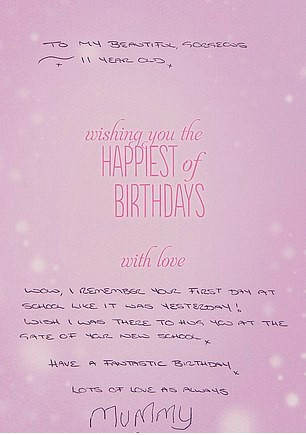 TO MY BEAUTIFUL, GORGEOUS
11 YEAR OLD x
wishing you the
HAPPIEST of
BIRTHDAYS
with love
WOW, I REMEMBER YOUR FIRST DAY AT
SCHOOL LIKE IT WAS YESTERDAY!
WISH I WAS THERE TO HUG YOU AT THE
GATE OF YOUR NEW SCHOOL x
HAVE A FANTASTIC BIRTHDAY x
LOTS OF LOVE AS ALWAYS
MUMMY